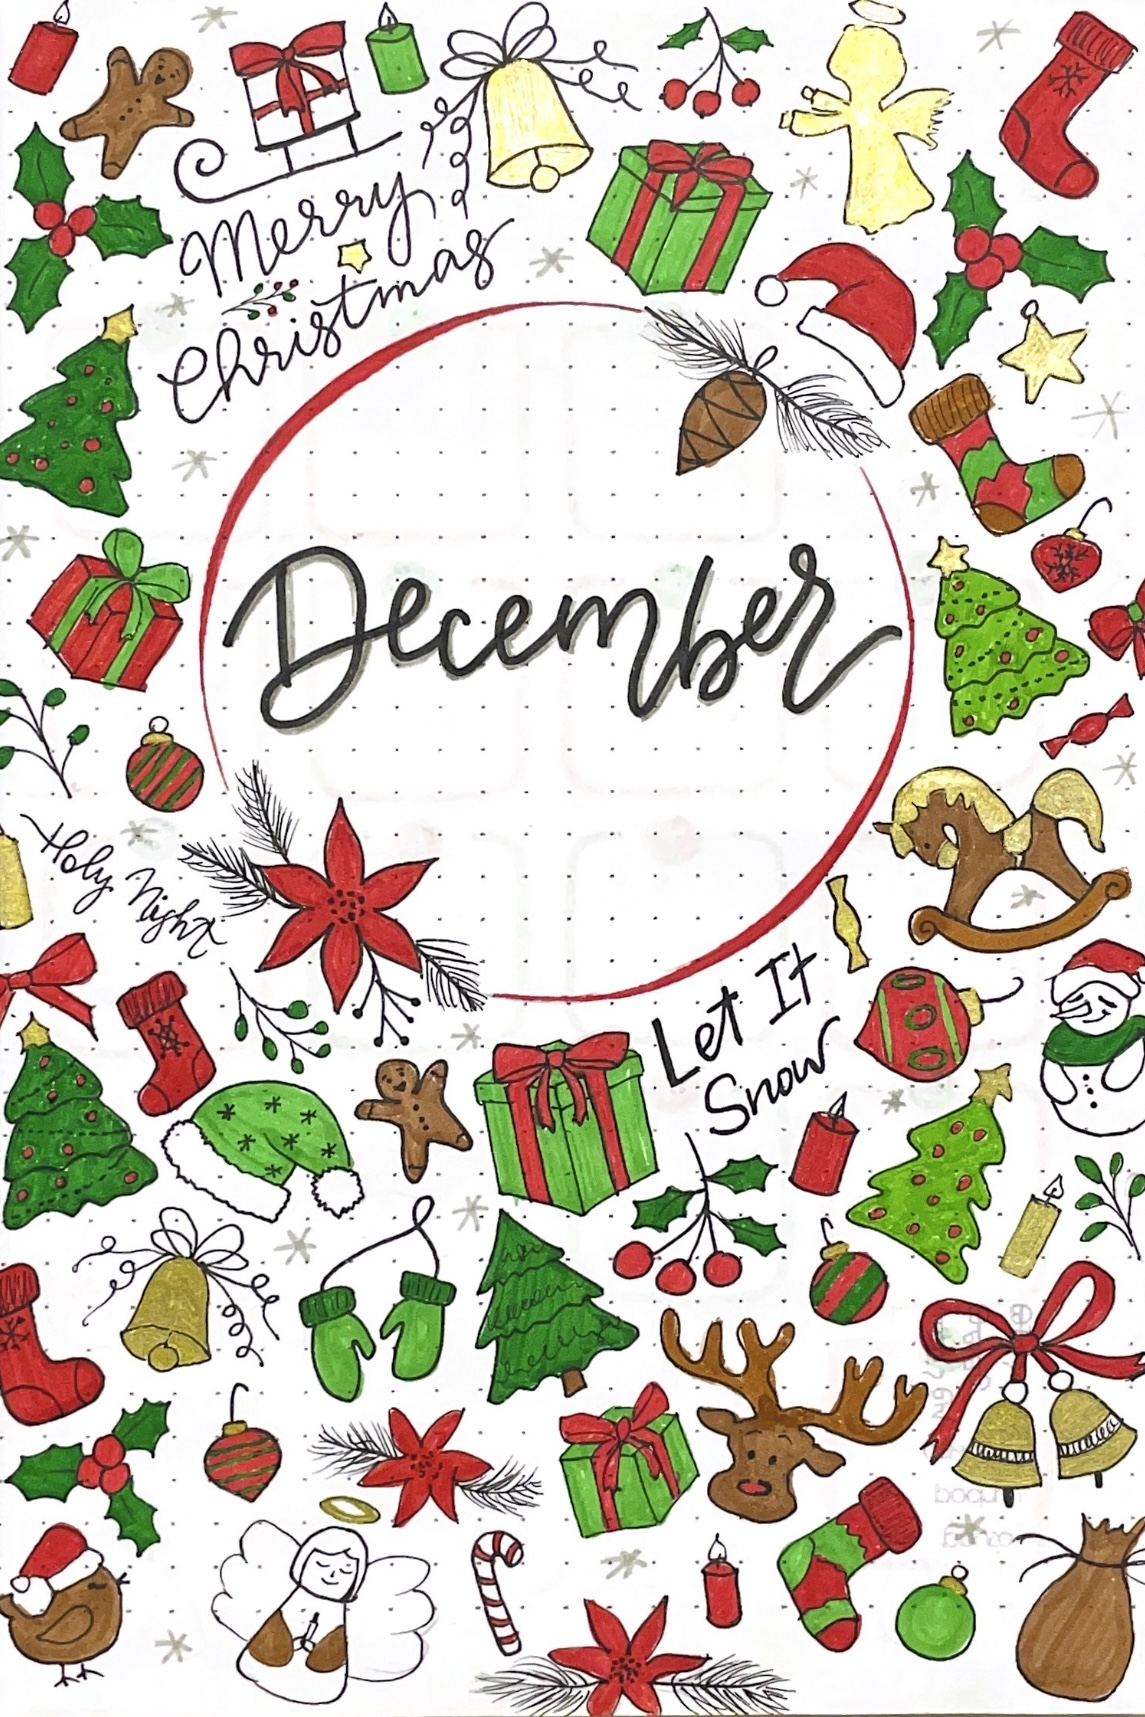 Merry
Christmas
December
Holy Night
Let It
Snow